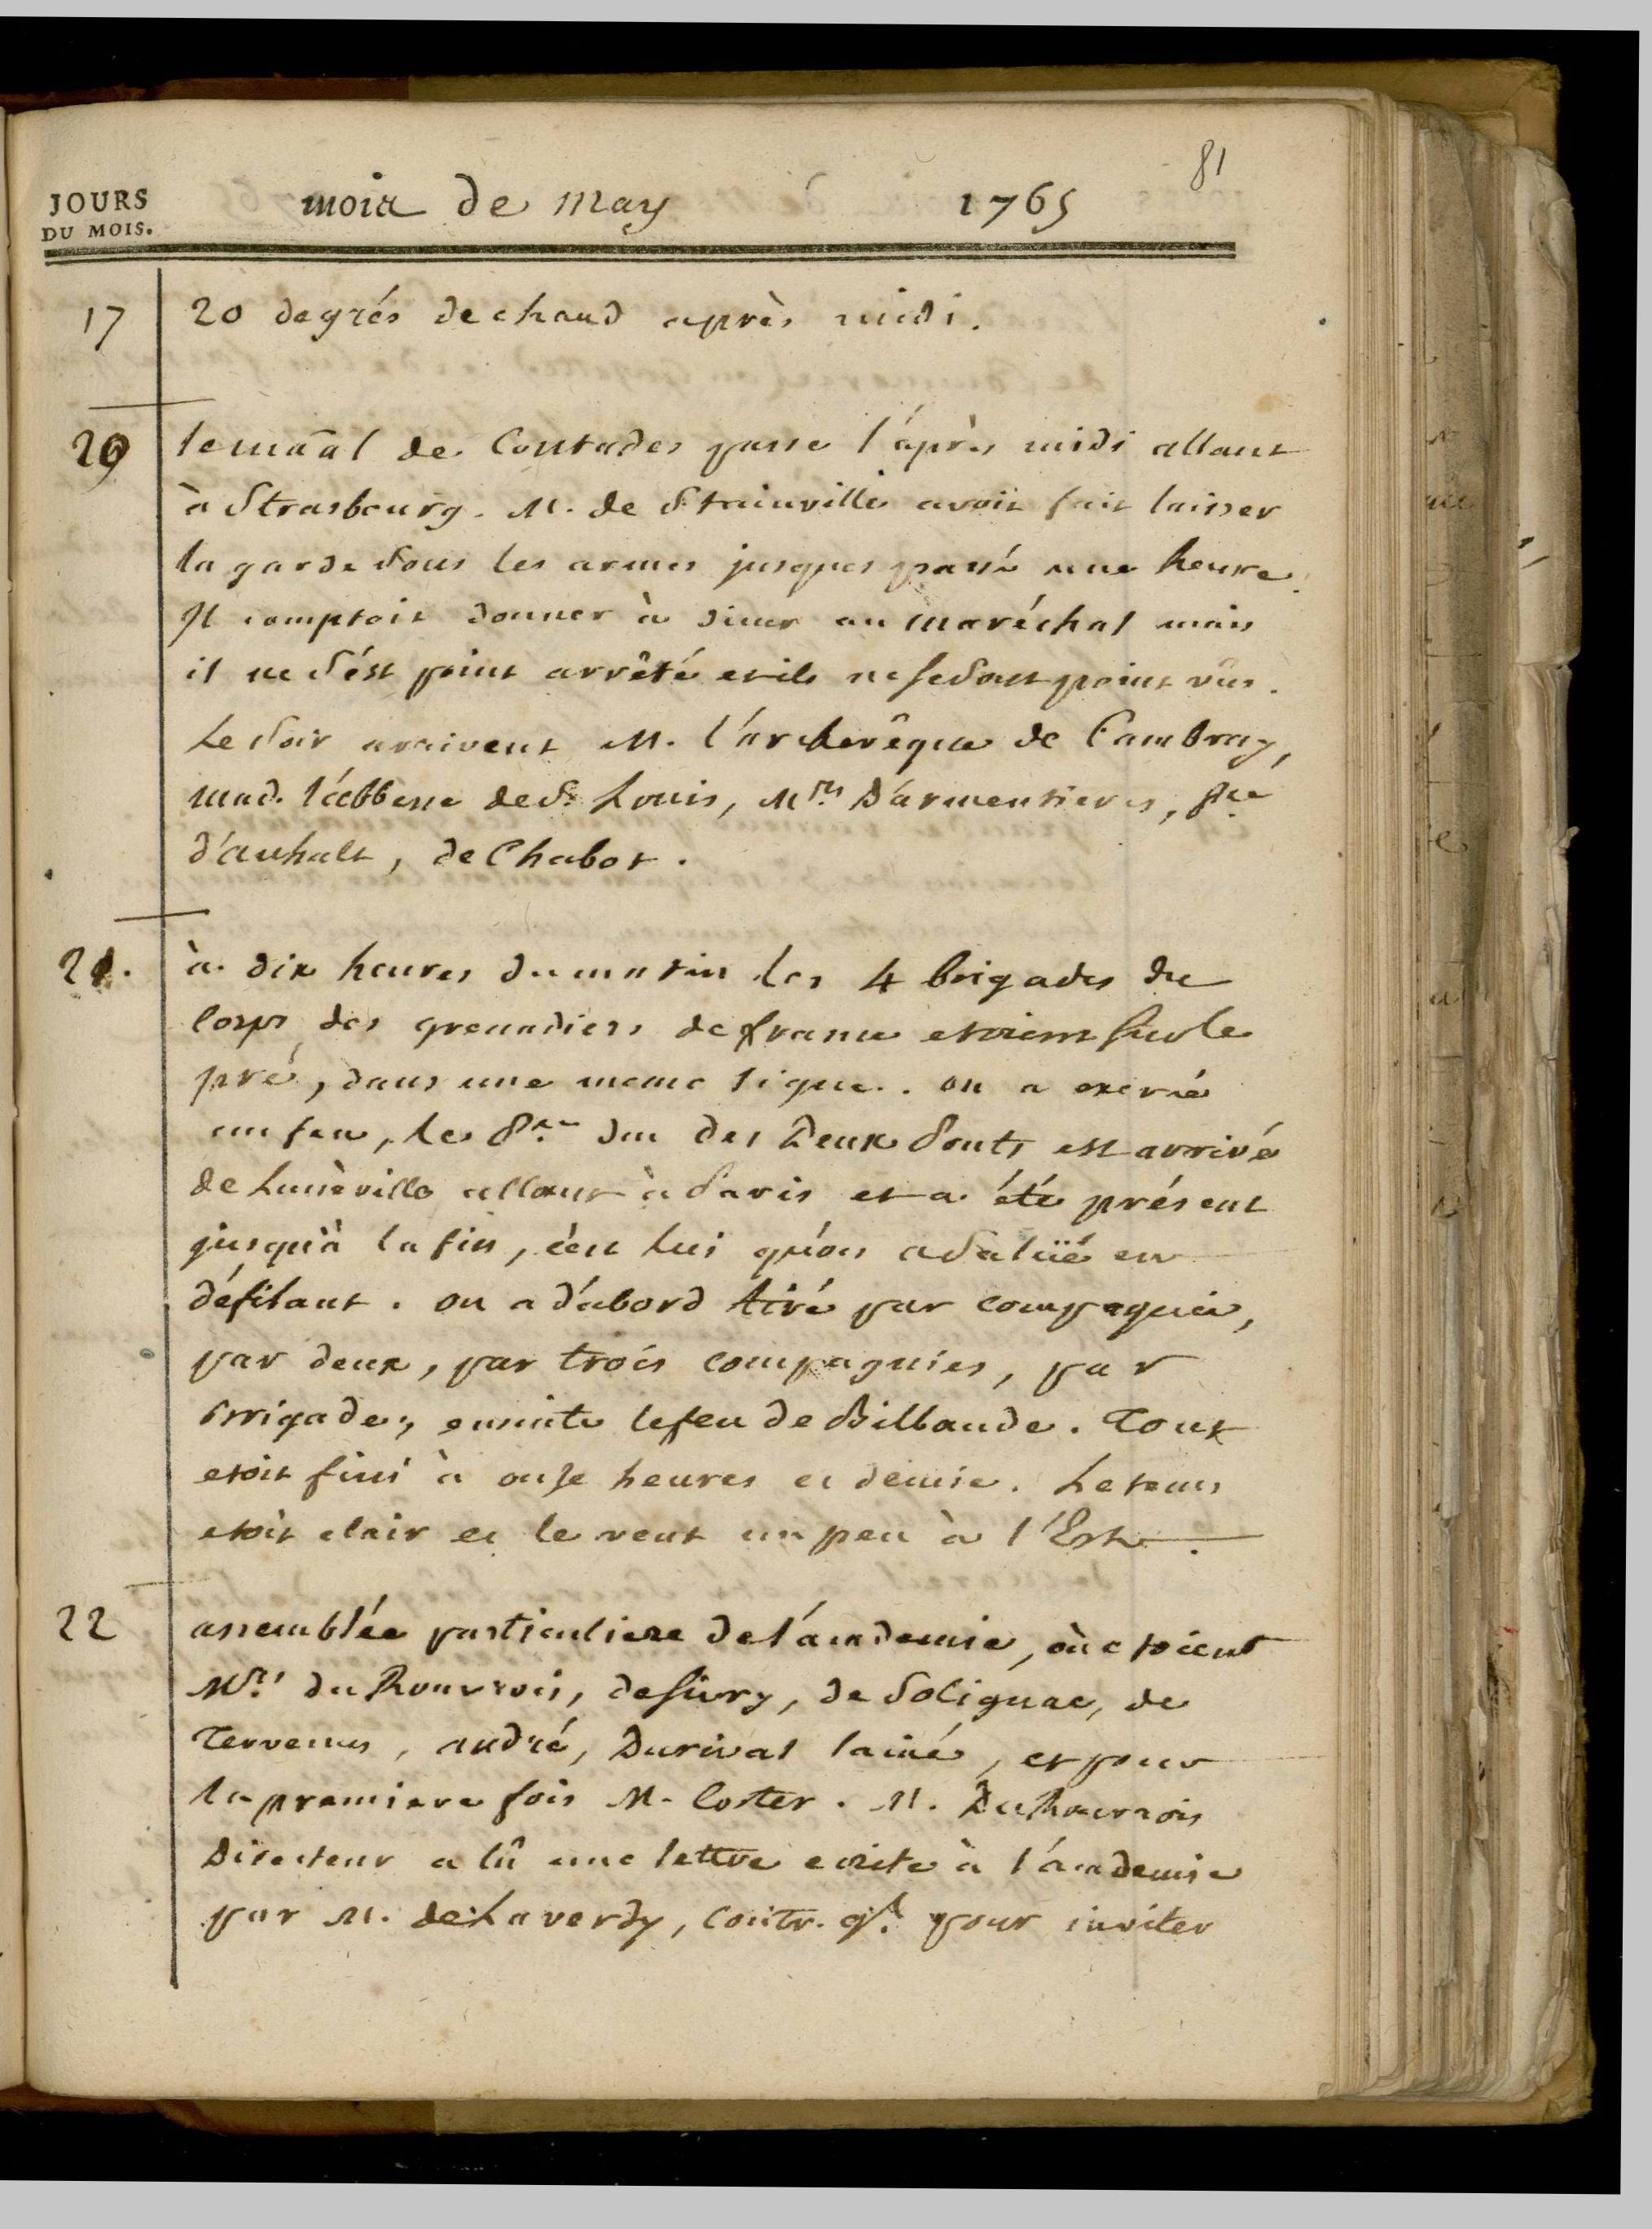 81
JOURS
DU MOIS.
mois de may 1765
17 20 degrés de chaud après midi.
20 le maal de Contades passe l'après midi allant
à Strasbourg. M. de Stainville avoit fait laisser
la garde sous les armes jusques passé une heure.
Il comptoit donner à diner au maréchal mais
il ne s'ést point arrêté et ils ne se sont point vûs.
Le soir arrivent M. l'archevêque de Cambray,
mad. l'abbesse de St Louis, Mrs D'armentieres, Pce
d'anhalt, de Chabot.
21. à dix heures du matin les 4 brigades du
corps des grenadiers de france etoient sur le
pré, dans une meme ligne. on a exercé
au feu, le Pce duc des Deux Ponts est arrivé
de Lunéville allant à Paris et a été présent
jusqu'à la fin, c'est lui qu'on a salüé en
défilant. on a d'abord tiré par compagnie,
par deux, par trois compagnies, par
brigade, ensuite le feu de Billbaude. Tout
etoit fini à onze heures et demie. Le tems
etoit clair et le vent un peu à l'Est.
22 assemblée particuliere de l'académie, où etoient
Mrs du Rouvrois, de Sivry, de Solignac, de
Tervenus, andré, Durival lainé, et pour
la premiere fois M. Coster. M. Du Rouvrois
Directeur a lû une lettre ecrite à l'académie
par M. de Laverdy, contr. gl. pour inviter